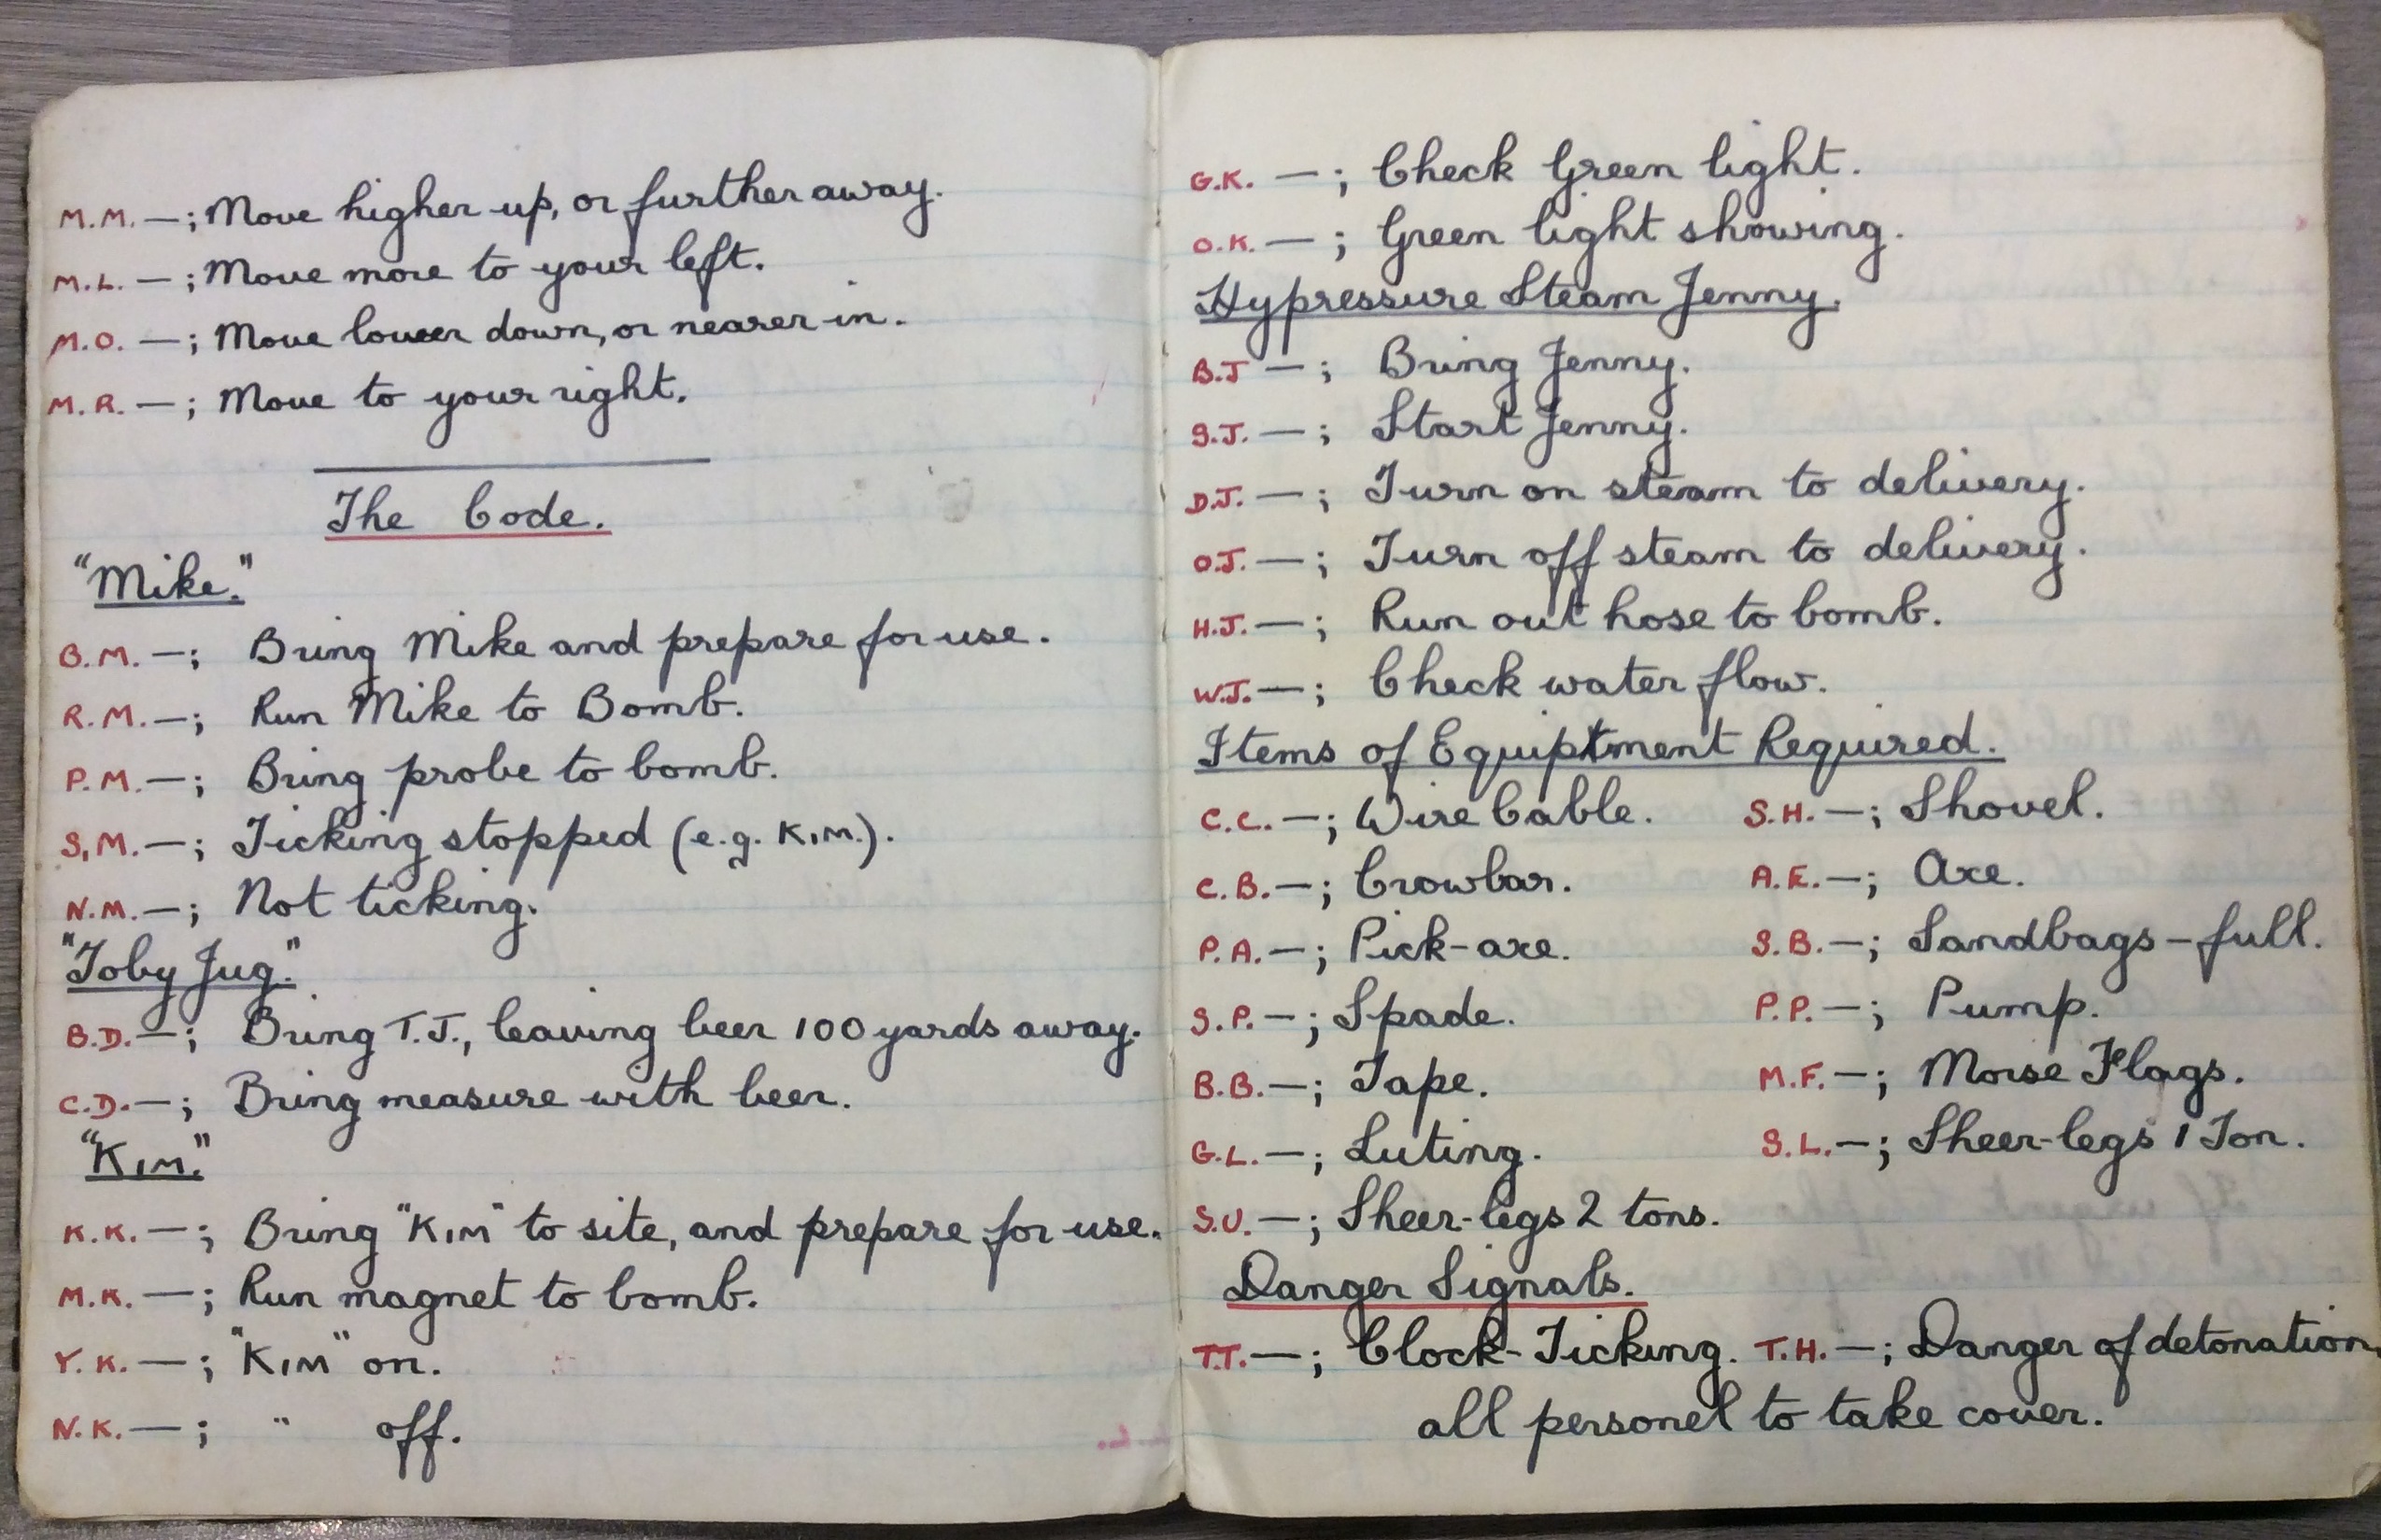 M.M. —; Move higher up, or further away.
M.L. —; Move more to your left.
M.O. —; Move lower down, or nearer in.
M.R. —; Move to your right.
The Code.
"Mike."
B.M. —; Bring Mike and prepare for use.
R.M. —; Run Mike to Bomb.
P.M. —; Bring probe to bomb.
S.M. —; Ticking stopped (e.g. KIM.).
N.M. —; Not ticking.
"Toby Jug."
B.D. —; Bring T.J., leaving beer 100 yards away.
C.D. —; Bring measure with beer.
"KIM."
K.K. —; Bring "KIM" to site, and prepare for use.
M.K. —; Run magnet to bomb.
Y.K. —; "KIM" on.
N.K. —; " off.
G.K. —; Check Green light.
O.K. —; Green light showing.
Hypressure Steam Jenny.
B.J —; Bring Jenny.
S.J. —; Start Jenny.
D.J. —; Turn on steam to delivery.
O.J. —; Turn off steam to delivery.
H.J. —; Run out hose to bomb.
W.J. —; Check water flow.
Items of Equiptment Required.
C.C. —; Wire Cable. S.H. —; Shovel.
C.B. —; Crowbar. A.E. —; Axe.
P.A. —; Pick-axe. S.B. —; Sandbags – full.
S.P. —; Spade. P.P. —; Pump.
B.B. —; Tape. M.F. —; Morse Flags.
G.L. —; Luting. S.L. —; Sheer-legs 1 Ton.
S.U. —; Sheer-legs 2 tons.
Danger Signals.
T.T. —; Clock-Ticking. T.H. —; Danger of detonation,
all personel to take cover.